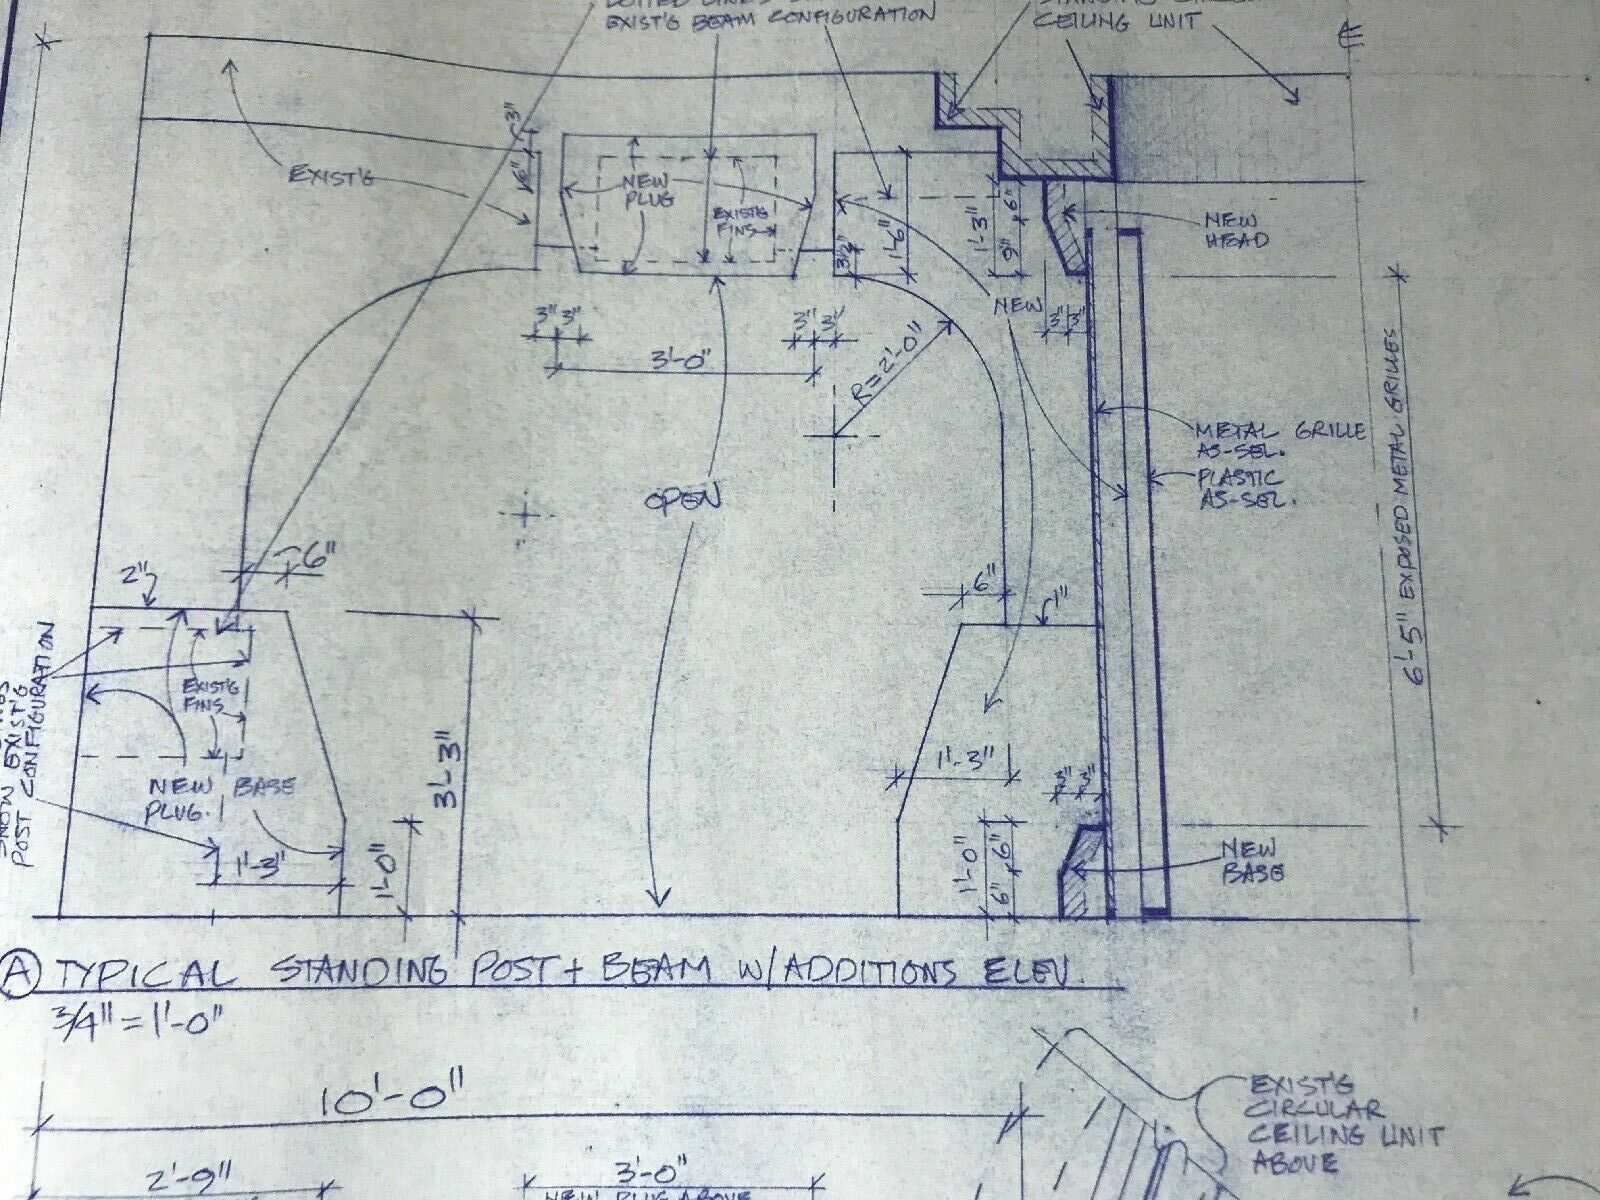 EXIST'G BEAM CONFIGURATION
CEILING UNIT
EXIST'G
3"
6"
NEW
PLUG
EXIST'G
FINS
3½"
1'-6"
1'-3"
6"
9"
NEW
HEAD
NEW
3" 3"
3" 3"
3" 3"
3'-0"
R=2'-0"
METAL GRILLE
AS-SEL.
PLASTIC
AS-SEL.
6'-5" EXPOSED METAL GRILLES
OPEN
2"
6"
6"
1"
EXIST'G
FINS
SHOW EXIST'G
POST CONFIGURATION
NEW
PLUG.
BASE
1'-3"
1'-0"
3'-3"
1'-3"
3" 3"
1'-0"
6"
6"
NEW
BASE
A TYPICAL STANDING POST + BEAM W/ADDITIONS ELEV.
3/4" = 1'-0"
10'-0"
2'-9"
3'-0"
NEW PLUG ABOVE
EXIST'G
CIRCULAR
CEILING UNIT
ABOVE